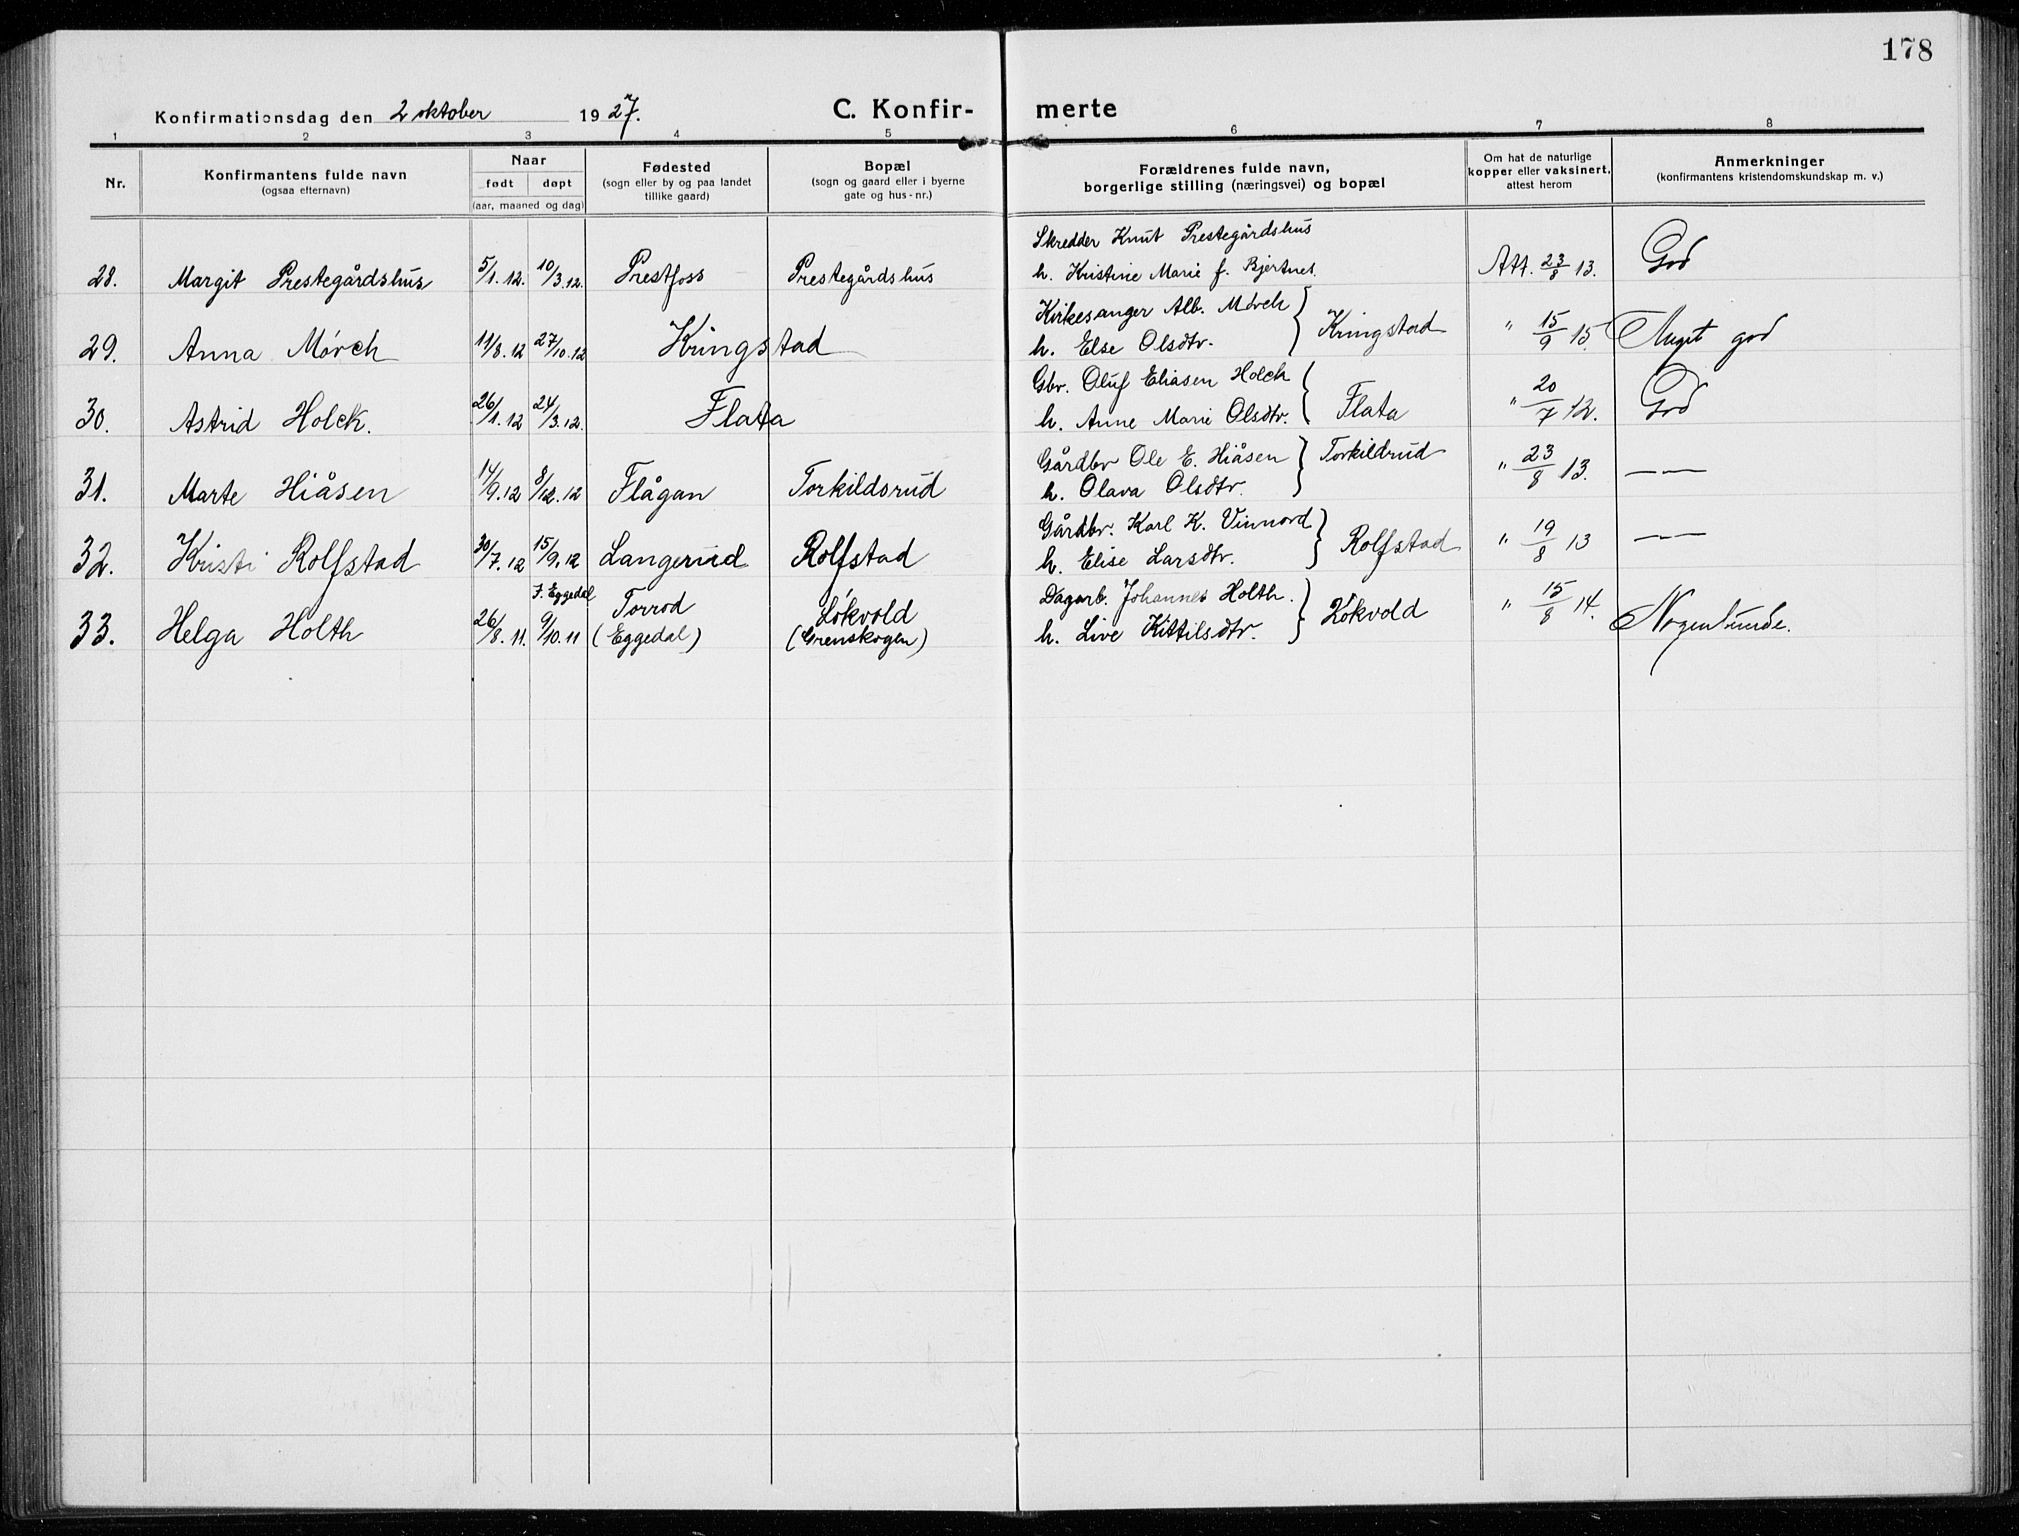 178
Konfirmationsdag den 2 oktober 1927. C. Konfir- merte
1 2 3 4 5 6 7 8
Nr. Konfirmantens fulde navn (ogsaa efternavn) Naar født døpt (aar, maaned og dag) Fødested (sogn eller by og paa landet tillike gaard) Bopæl (sogn og gaard eller i byerne gate og hus-nr.) Forældrenes fulde navn, borgerlige stilling (næringsvei) og bopæl Om hat de naturlige kopper eller vaksinert, attest herom Anmerkninger (konfirmantens kristendomskundskap m. v.)
Skredder Knut Prestegårdshus
28. Margit Prestegårdshus 5/1.12. 10/3.12. Prestfoss Prestegårdshus h. Kristine Marie f. Bjertnes. Att. 23/8 13. God
Kirkesanger Alb. Mørch
29. Anna Mørch 11/8.12 27/10.12 Kringstad h. Else Olsdtr. Kringstad " 15/9 15. Meget god
Gbr. Oluf Eliasen Holck
30. Astrid Holck. 26/1.12 24/3.12. Flata h. Anne Marie Olsdtr. Flata " 20/7 12. God
Gårdbr Ole E. Hiåsen Torkildrud
31. Marte Hiåsen 14/9.12 8/12.12 Flågan Torkildsrud h. Olava Olsdtr. " 23/8 13. — —
Gårdbr. Karl K. Vinnord
32. Kristi Rolfstad 30/7.12 15/9.12 Langerud Rolfstad h. Elise Larsdtr. Rolfstad " 19/8 13 — —
I. Eggedal Torrod Løkvold Dagarb. Johannes Holth.
33. Helga Holth 26/8.11. 9/10.11 (Eggedal) (Grenskogen) h. Live Kittilsdtr. Løkvold " 15/8 14. Nogenlunde.